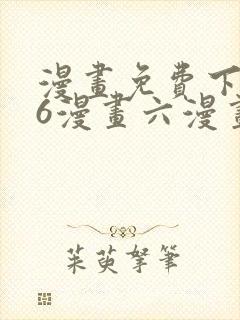 漫畫免費下
6漫畫六漫畫
茱萸拏筆